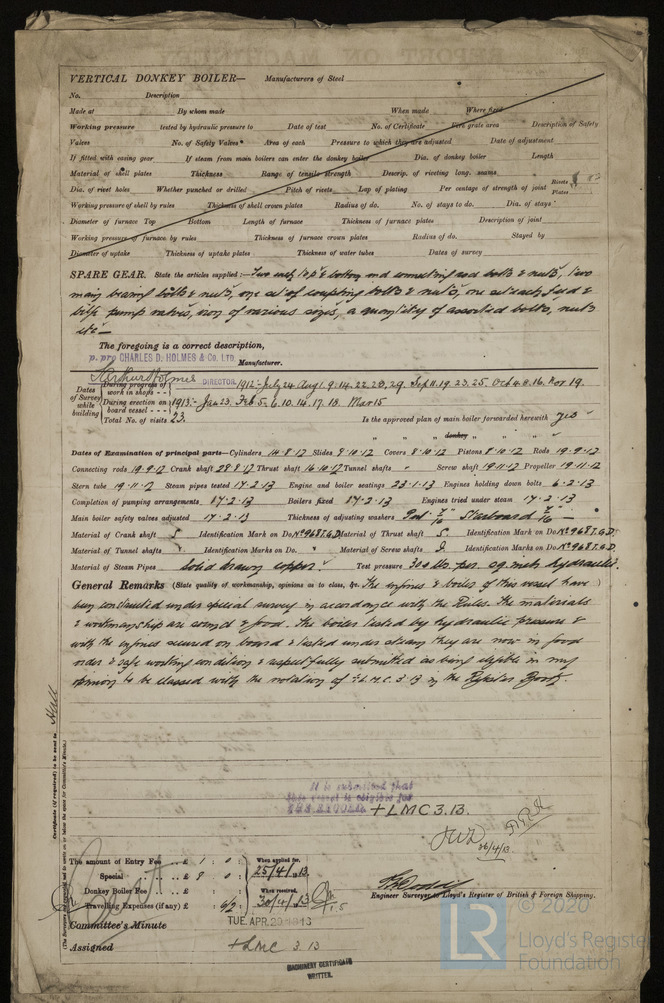 VERTICAL DONKEY BOILER— Manufacturers of Steel
No. Description
Made at By whom made When made Where fixed
Working pressure tested by hydraulic pressure to Date of test No. of Certificate Fire grate area Description of Safety
Valves No. of Safety Valves Area of each Pressure to which they are adjusted Date of adjustment
If fitted with easing gear If steam from main boilers can enter the donkey boiler Dia. of donkey boiler Length
Material of shell plates Thickness Range of tensile strength Descrip. of riveting long. seams
Dia. of rivet holes Whether punched or drilled Pitch of rivets Lap of plating Per centage of strength of joint Rivets Plates
Working pressure of shell by rules Thickness of shell crown plates Radius of do. No. of stays to do. Dia. of stays
Diameter of furnace Top Bottom Length of furnace Thickness of furnace plates Description of joint
Working pressure of furnace by rules Thickness of furnace crown plates Radius of do. Stayed by
Diameter of uptake Thickness of uptake plates Thickness of water tubes Dates of survey
SPARE GEAR. State the articles supplied:— Two each top & bottom end connecting rod bolts & nuts, two
main bearing bolts & nuts, one set of coupling bolts & nuts, one set each feed &
bilge pump valves, iron of various sizes, a quantity of assorted bolts, nuts
etc—
The foregoing is a correct description,
p. pro CHARLES D. HOLMES & Co. LTD. Manufacturer.
Arthur Holmes DIRECTOR.
Dates of Survey while building
During progress of work in shops - - 1912:- July 24. Aug 1. 9. 14. 22. 28. 29. Sep 11. 19. 23. 25. Oct 4. 8. 16. Nov 19.
During erection on board vessel - - - 1913:- Jan 23. Feb 5. 6. 10. 14. 17. 18. Mar 15
Total No. of visits 23. Is the approved plan of main boiler forwarded herewith Yes
" " " donkey " " " "
Dates of Examination of principal parts—Cylinders 14.8.12 Slides 8.10.12 Covers 8.10.12 Pistons 8.10.12 Rods 19.9.12
Connecting rods 19.9.12 Crank shaft 28.8.12 Thrust shaft 16.10.12 Tunnel shafts " Screw shaft 19.11.12 Propeller 19.11.12
Stern tube 19.11.12 Steam pipes tested 14.2.13 Engine and boiler seatings 23.1.13 Engines holding down bolts 6.2.13
Completion of pumping arrangements 17.2.13 Boilers fixed 17.2.13 Engines tried under steam 17.2.13
Main boiler safety valves adjusted 17.2.13 Thickness of adjusting washers Port 7/16" Starboard 7/16"
Material of Crank shaft S. Identification Mark on Do. No 968 T.G.D. Material of Thrust shaft S. Identification Mark on Do. No 968 T.G.D.
Material of Tunnel shafts Identification Marks on Do. " Material of Screw shafts I. Identification Marks on Do. No 968 T.G.D.
Material of Steam Pipes Solid drawn copper Test pressure 300 lbs. per. sq. inch hydraulic.
General Remarks (State quality of workmanship, opinions as to class, &c. The engines & boiler of this vessel have
been constructed under special survey in accordance with the Rules. The materials
& workmanship are sound & good. The boiler tested by hydraulic pressure &
with the engines secured on board & tested under steam they are now in good
order & safe working condition & respectfully submitted as being eligible in my
opinion to be classed with the notation of +L.M.C 3.13 in the Register Book.
Certificate (if required) to be sent to Hull
(The Surveyors are requested not to write on or below the space for Committee's Minute.)
It is submitted that
this vessel is eligible for
THE RECORD +LMC 3.13.
JWD 26/4/13.
The amount of Entry Fee .. £ 1 : 0 :
Special .. .. £ 9 : 0 :
Donkey Boiler Fee .. .. £ : :
Travelling Expenses (if any) £ :
When applied for, 25/4/13
When received, 30/4/13
Engineer Surveyor to Lloyd's Register of British & Foreign Shipping.
Committee's Minute TUE. APR. 29 1913
Assigned +LMC 3.13
MACHINERY CERTIFICATE
WRITTEN.
LR © 2020
Lloyd's Register
Foundation